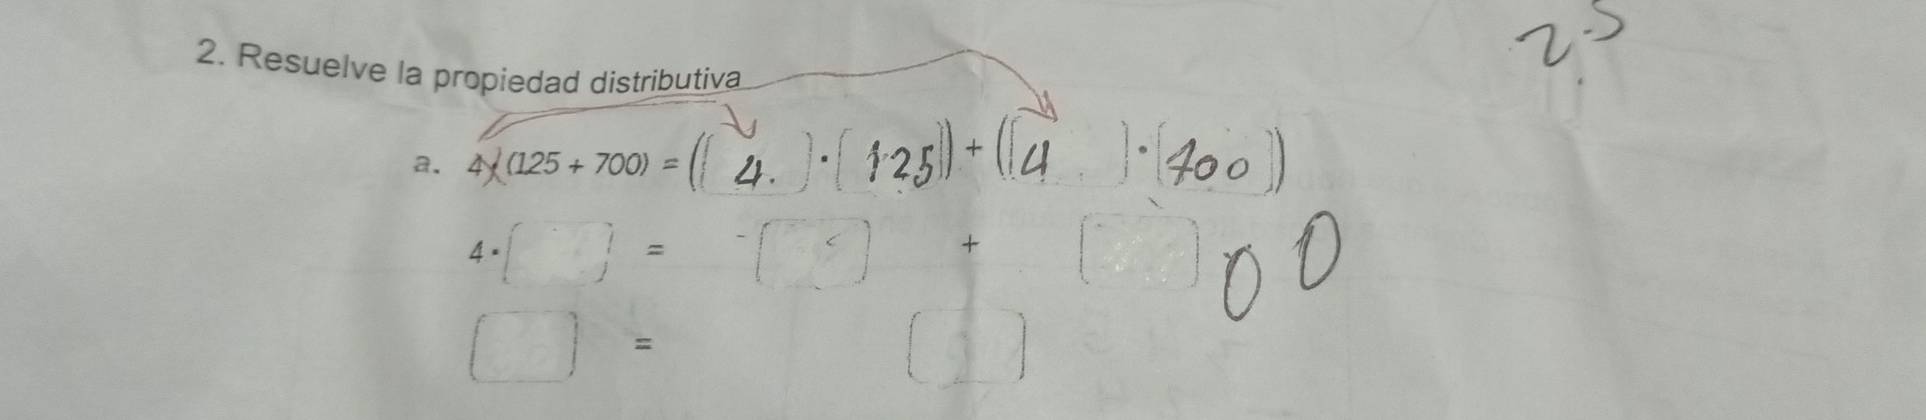 2.5
2. Resuelve la propiedad distributiva
a. 4·(125 + 700) = ([4.]·[125]) + ([4]·[700])
4·[ ] = [ ] + [ ] 00
[ ] = [ ]